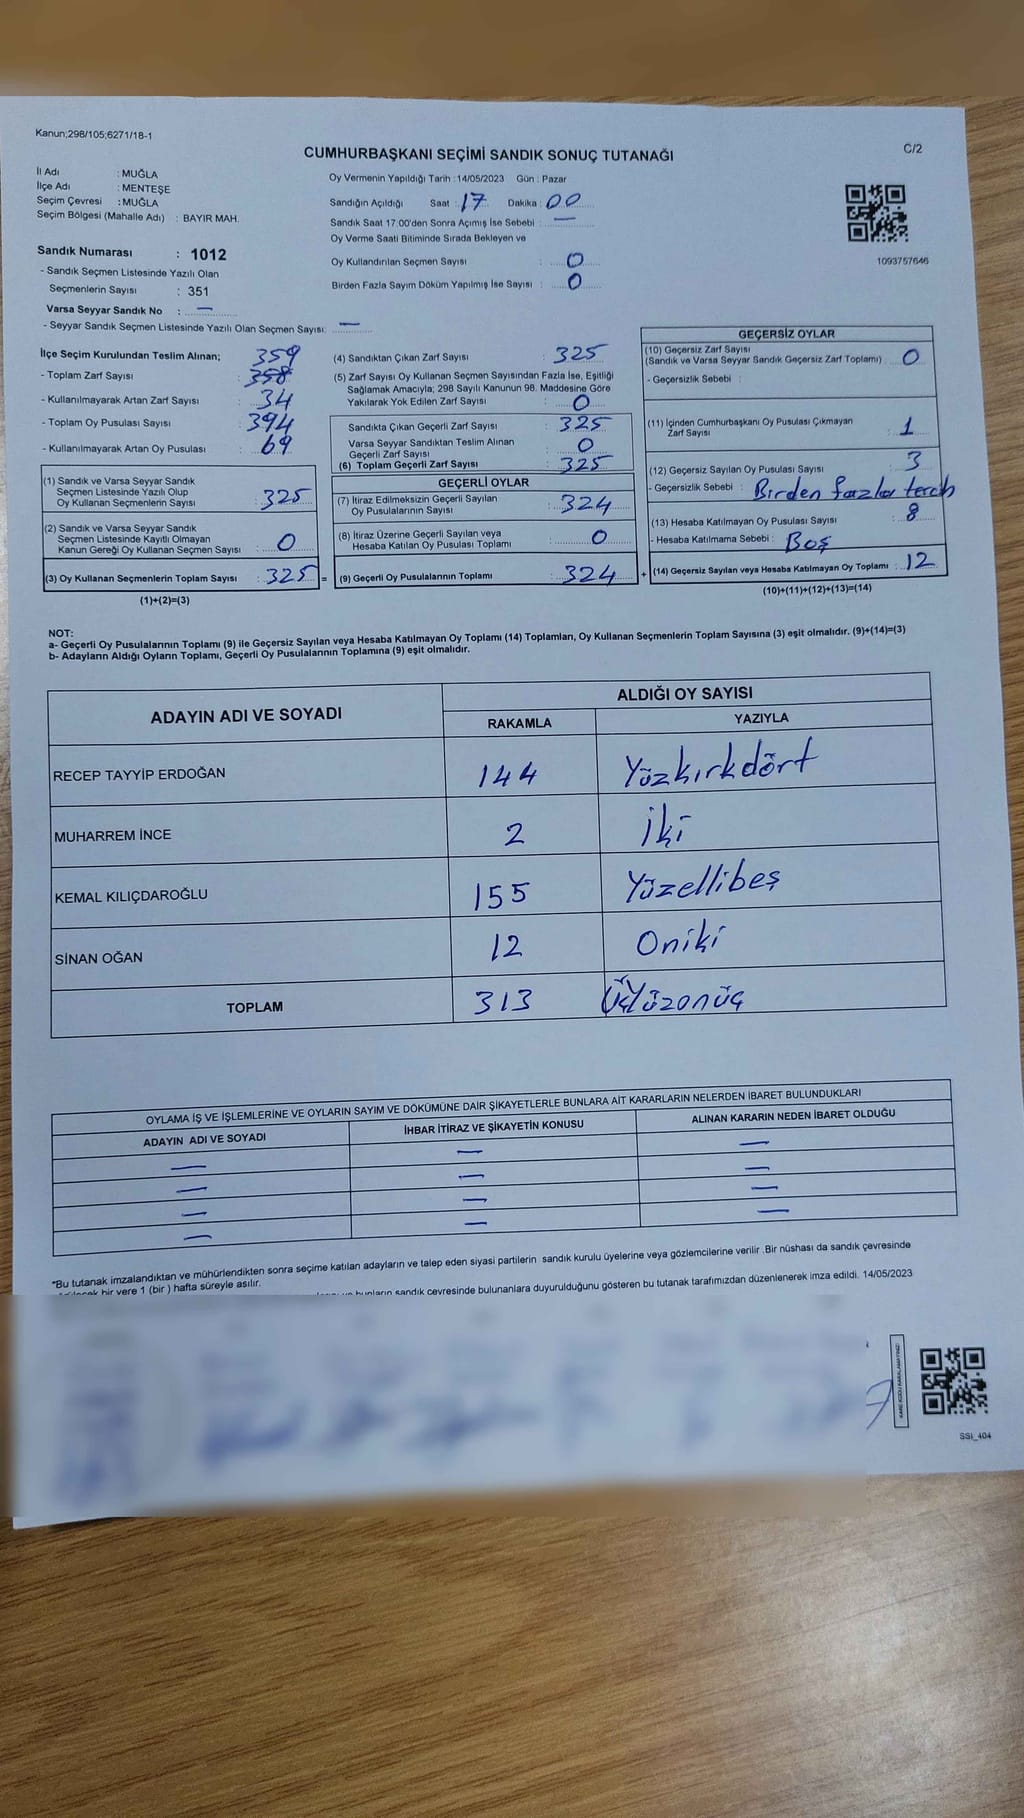 Kanun;298/105;6271/18-1
CUMHURBAŞKANI SEÇİMİ SANDIK SONUÇ TUTANAĞI
C/2
İl Adı : MUĞLA
İlçe Adı : MENTEŞE
Seçim Çevresi : MUĞLA
Seçim Bölgesi (Mahalle Adı) : BAYIR MAH.
Sandık Numarası : 1012
- Sandık Seçmen Listesinde Yazılı Olan
Seçmenlerin Sayısı : 351
Varsa Seyyar Sandık No : —
- Seyyar Sandık Seçmen Listesinde Yazılı Olan Seçmen Sayısı: —
Oy Vermenin Yapıldığı Tarih :14/05/2023 Gün : Pazar
Sandığın Açıldığı Saat : 17 Dakika : 00
Sandık Saat 17.00'den Sonra Açımış İse Sebebi : —
Oy Verme Saati Bitiminde Sırada Bekleyen ve
Oy Kullandırılan Seçmen Sayısı : 0
Birden Fazla Sayım Döküm Yapılmış İse Sayısı : 0
1093757646
İlçe Seçim Kurulundan Teslim Alınan; 359
- Toplam Zarf Sayısı : 358
- Kullanılmayarak Artan Zarf Sayısı : 34
- Toplam Oy Pusulası Sayısı : 394
- Kullanılmayarak Artan Oy Pusulası : 69
(1) Sandık ve Varsa Seyyar Sandık
Seçmen Listesinde Yazılı Olup
Oy Kullanan Seçmenlerin Sayısı : 325
(2) Sandık ve Varsa Seyyar Sandık
Seçmen Listesinde Kayıtlı Olmayan
Kanun Gereği Oy Kullanan Seçmen Sayısı : 0
(3) Oy Kullanan Seçmenlerin Toplam Sayısı : 325 =
(1)+(2)=(3)
(4) Sandıktan Çıkan Zarf Sayısı : 325
(5) Zarf Sayısı Oy Kullanan Seçmen Sayısından Fazla İse, Eşitliği
Sağlamak Amacıyla; 298 Sayılı Kanunun 98. Maddesine Göre
Yakılarak Yok Edilen Zarf Sayısı : 0
Sandıkta Çıkan Geçerli Zarf Sayısı : 325
Varsa Seyyar Sandıktan Teslim Alınan
Geçerli Zarf Sayısı : 0
(6) Toplam Geçerli Zarf Sayısı : 325
GEÇERLİ OYLAR
(7) İtiraz Edilmeksizin Geçerli Sayılan
Oy Pusulalarının Sayısı : 324
(8) İtiraz Üzerine Geçerli Sayılan veya
Hesaba Katılan Oy Pusulası Toplamı : 0
(9) Geçerli Oy Pusulalarının Toplamı : 324 +
GEÇERSİZ OYLAR
(10) Geçersiz Zarf Sayısı
(Sandık ve Varsa Seyyar Sandık Geçersiz Zarf Toplamı) : 0
- Geçersizlik Sebebi :
(11) İçinden Cumhurbaşkanı Oy Pusulası Çıkmayan
Zarf Sayısı : 1
(12) Geçersiz Sayılan Oy Pusulası Sayısı : 3
- Geçersizlik Sebebi : Birden fazla tercih
(13) Hesaba Katılmayan Oy Pusulası Sayısı : 8
- Hesaba Katılmama Sebebi : Boş
(14) Geçersiz Sayılan veya Hesaba Katılmayan Oy Toplamı : 12
(10)+(11)+(12)+(13)=(14)
NOT:
a- Geçerli Oy Pusulalarının Toplamı (9) ile Geçersiz Sayılan veya Hesaba Katılmayan Oy Toplamı (14) Toplamları, Oy Kullanan Seçmenlerin Toplam Sayısına (3) eşit olmalıdır. (9)+(14)=(3)
b- Adayların Aldığı Oyların Toplamı, Geçerli Oy Pusulalarının Toplamına (9) eşit olmalıdır.
ADAYIN ADI VE SOYADI ALDIĞI OY SAYISI
RAKAMLA YAZIYLA
RECEP TAYYİP ERDOĞAN 144 Yüzkırkdört
MUHARREM İNCE 2 İki
KEMAL KILIÇDAROĞLU 155 Yüzellibeş
SİNAN OĞAN 12 Oniki
TOPLAM 313 ÜçYüzonüç
OYLAMA İŞ VE İŞLEMLERİNE VE OYLARIN SAYIM VE DÖKÜMÜNE DAİR ŞİKAYETLERLE BUNLARA AİT KARARLARIN NELERDEN İBARET BULUNDUKLARI
ADAYIN ADI VE SOYADI İHBAR İTİRAZ VE ŞİKAYETİN KONUSU ALINAN KARARIN NEDEN İBARET OLDUĞU
— — —
— — —
— — —
— — —
*Bu tutanak imzalandıktan ve mühürlendikten sonra seçime katılan adayların ve talep eden siyasi partilerin sandık kurulu üyelerine veya gözlemcilerine verilir .Bir nüshası da sandık çevresinde
bir yere 1 (bir ) hafta süreyle asılır.
bunların sandık çevresinde bulunanlara duyurulduğunu gösteren bu tutanak tarafımızdan düzenlenerek imza edildi. 14/05/2023
KARE KODU KARALAMAYINIZ
SSI_404